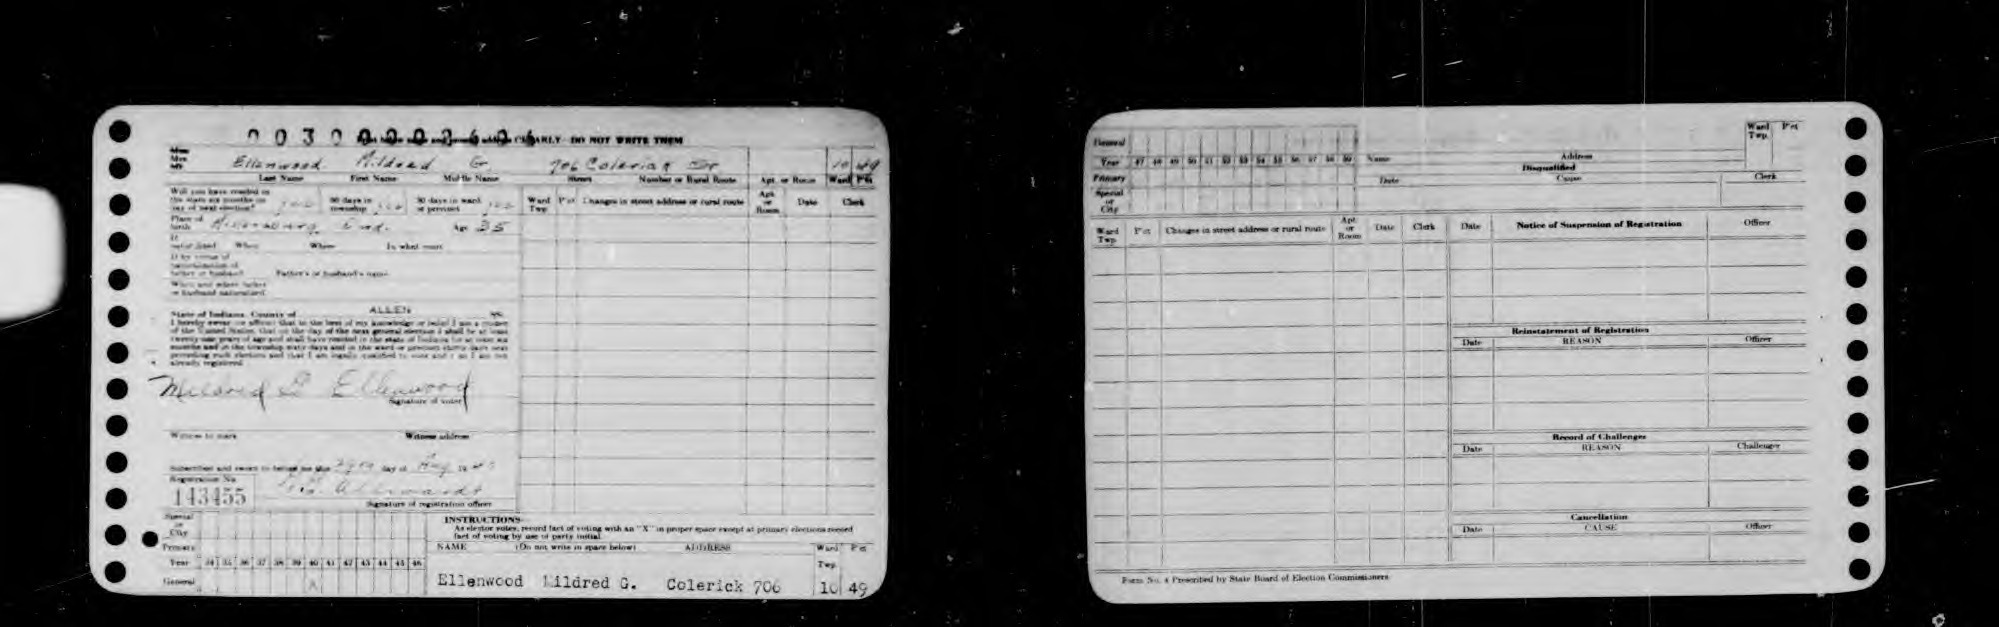 PLEASE PRINT NAME and ADDRESS CLEARLY - DO NOT WRITE THEM
Mrs
Ellenwood Mildred G 706 Colerick St 10 49
Last Name First Name Middle Name Street Number or Rural Route Apt. or Room Ward Pct
Will you have resided in the state six months on day of next election? yes 60 days in township yes 30 days in ward or precinct yes
Ward Twp. Pct Changes in street address or rural route Apt. or Room Date Clerk
Place of birth Ind. Age 35
If naturalized When Where In what court
If by virtue of naturalization of father or husband Father's or husband's name
When and where father or husband naturalized
State of Indiana, County of ALLEN SS.
I hereby swear (or affirm) that to the best of my knowledge or belief I am a citizen
of the United States, that on the day of the next general election I shall be at least
twenty-one years of age and shall have resided in the state of Indiana for at least six
months and in the township sixty days and in the ward or precinct thirty days next
preceding such election and that I am legally qualified to vote and that I am not
already registered.
Mildred G Ellenwood
Signature of voter
Witness to mark Witness address
Subscribed and sworn to before me this 29th day of Aug 19 40
Registration No.
143455
Signature of registration officer
Special or City
Primary
Year 34 35 36 37 38 39 40 41 42 43 44 45 46
General X
INSTRUCTIONS
As elector votes, record fact of voting with an "X" in proper space except at primary elections record
fact of voting by use of party initial.
NAME (Do not write in space below) ADDRESS Ward Twp. Pct
Ellenwood Mildred G. Colerick 706 10 49
General
Year 47 48 49 50 51 52 53 54 55 56 57 58 59
Primary
Special or City
Name Address Ward Twp. Pct
Disqualified
Date Cause Clerk
Ward Twp. Pct Changes in street address or rural route Apt. or Room Date Clerk
Date Notice of Suspension of Registration Officer
Reinstatement of Registration
Date REASON Officer
Record of Challenges
Date REASON Challenger
Cancellation
Date CAUSE Officer
Form No. 4 Prescribed by State Board of Election Commissioners